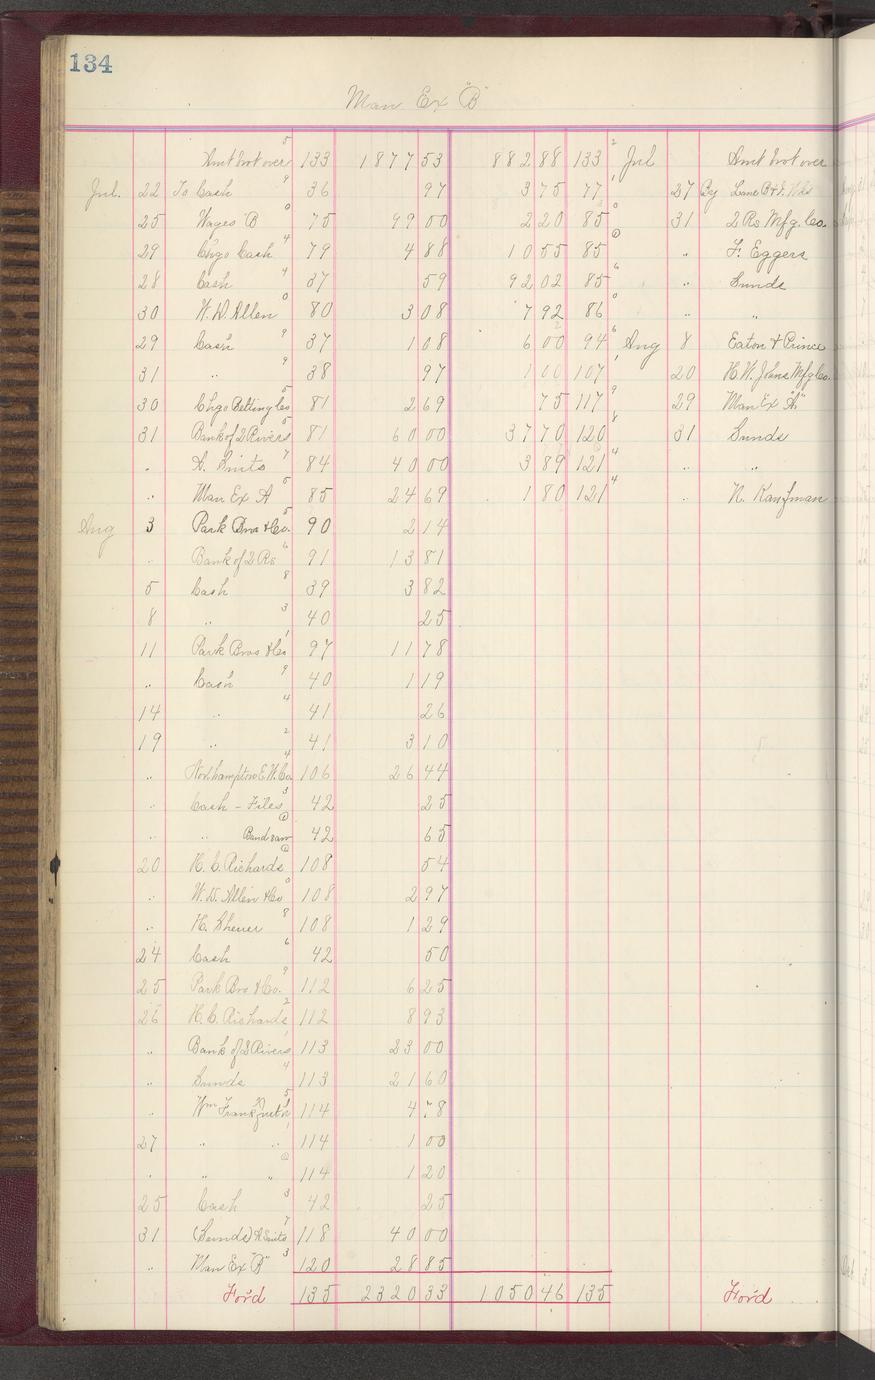 134
Man Ex "B"
Amt brot over 5 133 1877 53 882 88 133 2 Jul Amt brot over
Jul. 22 To Cash 9 36 97 3 75 77 1 27 By Lane B
25 Wages B 0 75 99 00 2 20 85 0 31 2 Rs Mfg. Co.
29 Chgo Cash 4 79 4 88 10 55 85 0 " F. Eggers
28 Cash 4 37 59 92 02 85 6 " Sunds
30 W. D. Allen 0 80 3 08 7 92 86 0 " "
29 Cash 9 37 1 08 6 00 94 6 Aug 8 Eaton & Prince
31 " 9 38 97 1 00 107 1 20 H. W. Johns Mfg Co.
30 Chgo Belting Co 5 81 2 69 75 117 9 29 Man Ex "A"
31 Bank of 2 Rivers 5 81 60 00 37 70 120 8 31 Sunds
" A. Smits 7 84 40 00 3 89 121 4 " "
" Man Ex A 5 85 24 69 1 80 121 4 " N. Kaufman
Aug 3 Park Bros & Co. 5 90 2 14
" Bank of 2 Rs 6 91 13 81
5 Cash 8 39 3 82
8 " 3 40 25
11 Park Bros & Co 1 97 11 78
" Cash 9 40 1 19
14 " 4 41 26
19 " 2 41 3 10
" Northampton E. W. Co. 4 106 26 44
" Cash - Files 3 42 25
" " Bandsaw 0 42 65
20 H. C. Richards 0 108 54
" W. D. Allen & Co 0 108 2 97
" H. Sheuer 8 108 1 29
24 Cash 6 42 50
25 Park Bros & Co. 9 112 6 25
26 H. C. Richards 2 112 8 93
" Bank of 2 Rivers 1 113 23 00
" Sunds 4 113 21 60
" Wm 5 114 4 78
27 " " 1 114 1 00
" " " 0 114 1 20
25 Cash 3 42 25
31 (Sunds) A Smits 7 118 40 00
" Man Ex "B" 3 120 28 85
Ford 135 2320 33 1050 46 135 Ford